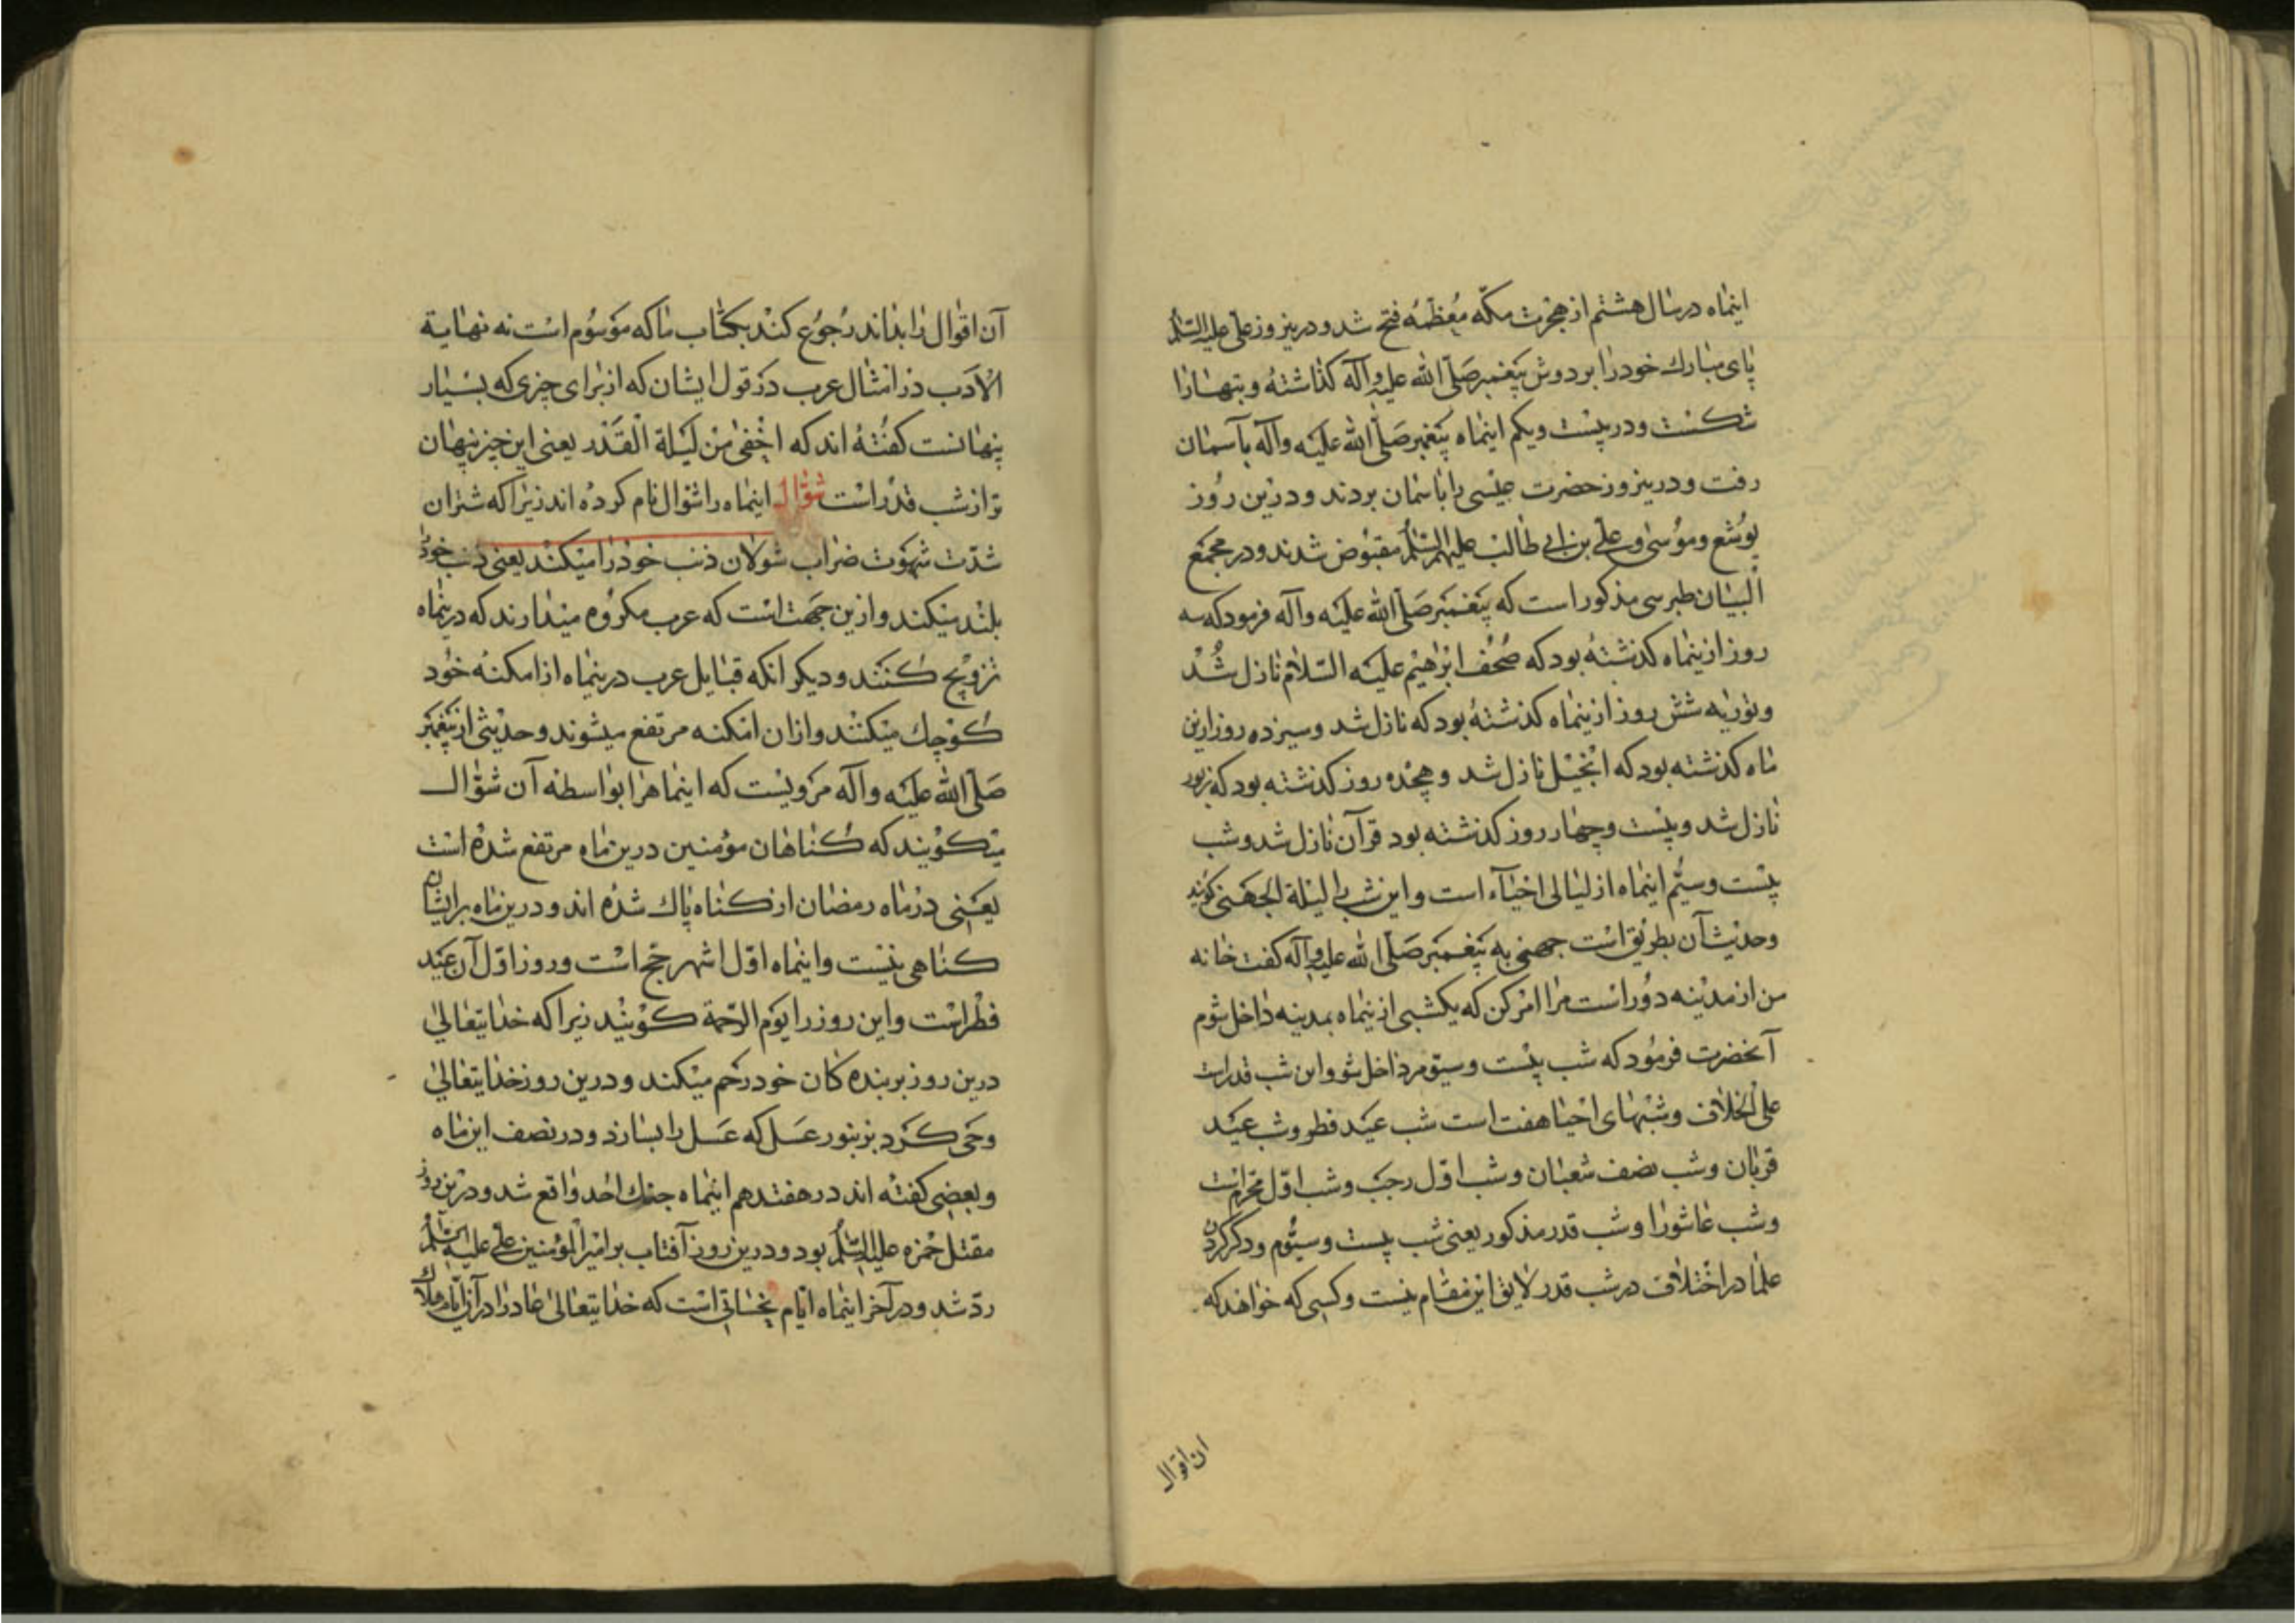 اینماه در سال هشتم از هجرت مکّه مُعظّمه فتح شد و درینروز علی علیه السّلم
پای مبارك خود را بر دوش پیغمبر صَلّی الله علیه وآله گذاشته و بتهارا
شکست و در بیست ویکم اینماه پیغمبر صَلّی الله علیه وآله بآسمان
رفت و درینروز حضرت عیسی را باسمان بردند و درین روز
یوشع وموسی وعلی بن ابی طالب علیهم السّلم مقبوض شدند و در مجمع
البیان طبرسی مذکور است که پیغمبر صَلّی الله علیه وآله فرمود که سه
روز ازینماه کذشته بود که صُحُف ابرٰهیم علیه السّلام نازل شُد
وتوریه شش روز ازینماه کذشته بود که نازل شد وسیزده روز ازین
ماه کذشته بود که انجیل نازل شد وهیجده روز کذشته بود که زبور
نازل شد وبیست وچهار روز کذشته بود قرآن نازل شد وشب
بیست وسیّم اینماه از لیالی احیاء است واین شب را لیلة الجهنی کویند
وحدیث آن بطریق است جهنی به پیغمبر صَلّی الله علیه وآله کفت خانه
من از مدینه دور است مرا امر کن که یکشبی ازینماه بمدینه داخل شوم
آنحضرت فرمود که شب بیست وسیّوم داخل شو واین شب قدر است
علی الخلاف وشبهای احیا هفت است شب عید فطر وشب عید
قربان وشب نصف شعبان وشب اوّل رجب وشب اوّل محرّم است
وشب عاشورا وشب قدر مذکور یعنی شب بیست وسیّوم وذکر کردن
علما در اختلاف در شب قدر لایق این مقام نیست وکسی که خواهد که
ان اقوال
آن اقوال را بداند رجوع کند بکتاب ما که موسوم است نه نهایة
الْأدَب در امثال عرب در قول ایشان که از برای چیزی که بسیار
پنهانست کفته اند که اخفی من لَیلة الْقَدْر یعنی این چیز پنهان
تر از شب قدر است شوّال اینماه را شوال نام کرده اند زیرا که شتران
شدّت شهوت ضراب شولان ذنب خود را میکند یعنی ذنب خود
بلند میکند وازین جهت است که عرب مکروه میدارند که درینماه
تزویج کنند ودیکر انکه قبایل عرب درینماه از امکنهٔ خود
کوچك میکنند وازان امکنه مرتفع میشوند وحدیثی از پیغمبر
صَلّی الله علیه وآله مرویست که اینماهرا بواسطه آن شوّال
میکویند که کناهان مؤمنین درین ماه مرتفع شده است
یعنی در ماه رمضان از کناه پاك شده اند و درین ماه بر ایشان
کناهی نیست واینماه اوّل اشهر حج است وروز اوّل آن عید
فطر است واین روز را یوم الرّحمة کویند زیرا که خدایتعالی
درین روز بر بنده کان خود رحم میکند و درین روز خدایتعالی
وحی کرد بزنبور عسل که عسل را بسازد و در نصف این ماه
وبعضی کفته اند در هفتدهم اینماه جنك احد واقع شد و درین روز
مقتل حمزه علیه السّلم بود و درین روز آفتاب بر امیر المؤمنین علی علیه السّلم
ردّ شد و در آخر اینماه ایّام نحسات است که خدایتعالی عاد را در آن ایّام هلاك